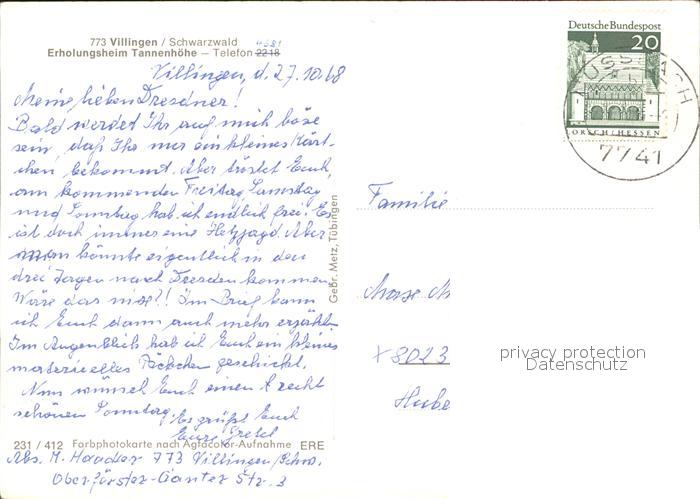 773 Villingen / Schwarzwald
4681
Erholungsheim Tannenhöhe – Telefon 2218
Villingen, d. 27.10.68
Meine lieben Dresdner!
Bald werdet Ihr auf mich böse
sein, daß Ihr nur ein kleines Kärt-
chen bekommt. Aber tröstet Euch,
am kommenden Freitag Samstag
und Sonntag hab ich endlich frei. Es
ist doch immer eine Hetzjagd. Aber
man könnte eigentlich in den
drei Tagen nach Dresden kommen.
Wäre das nicht?! Im Brief kann
ich Euch dann auch mehr erzählen.
Im Augenblick hab ich Euch ein kleines
materielles Päckchen geschickt.
Nun wünsch Euch einen recht
schönen Sonntag. Es grüßt Euch
Eure Gretel
231 / 412 Farbphotokarte nach Agfacolor-Aufnahme ERE
Abs. M. Haader 773 Villingen/Schw.
Oberförster-Ganter Str. 3
Gebr. Metz, Tübingen
Deutsche Bundespost
20
LORSCH/HESSEN
7741
Familie
8023
privacy protection
Datenschutz